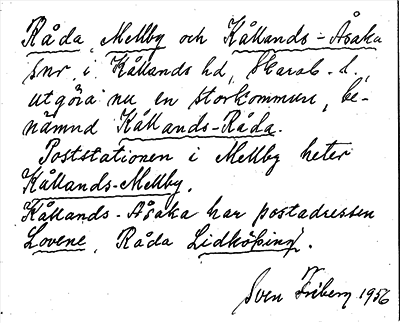 Råda, Mellby och Kållands-Åsaka
snr i Kållands hd, Skarab. l.,
utgöra nu en storkommun, be-
nämnd Kållands-Råda.
Poststationen i Mellby heter
Kållands-Mellby.
Kållands-Åsaka har postadressen
Lovene, Råda Lidköping.
Sven Friberg 1956